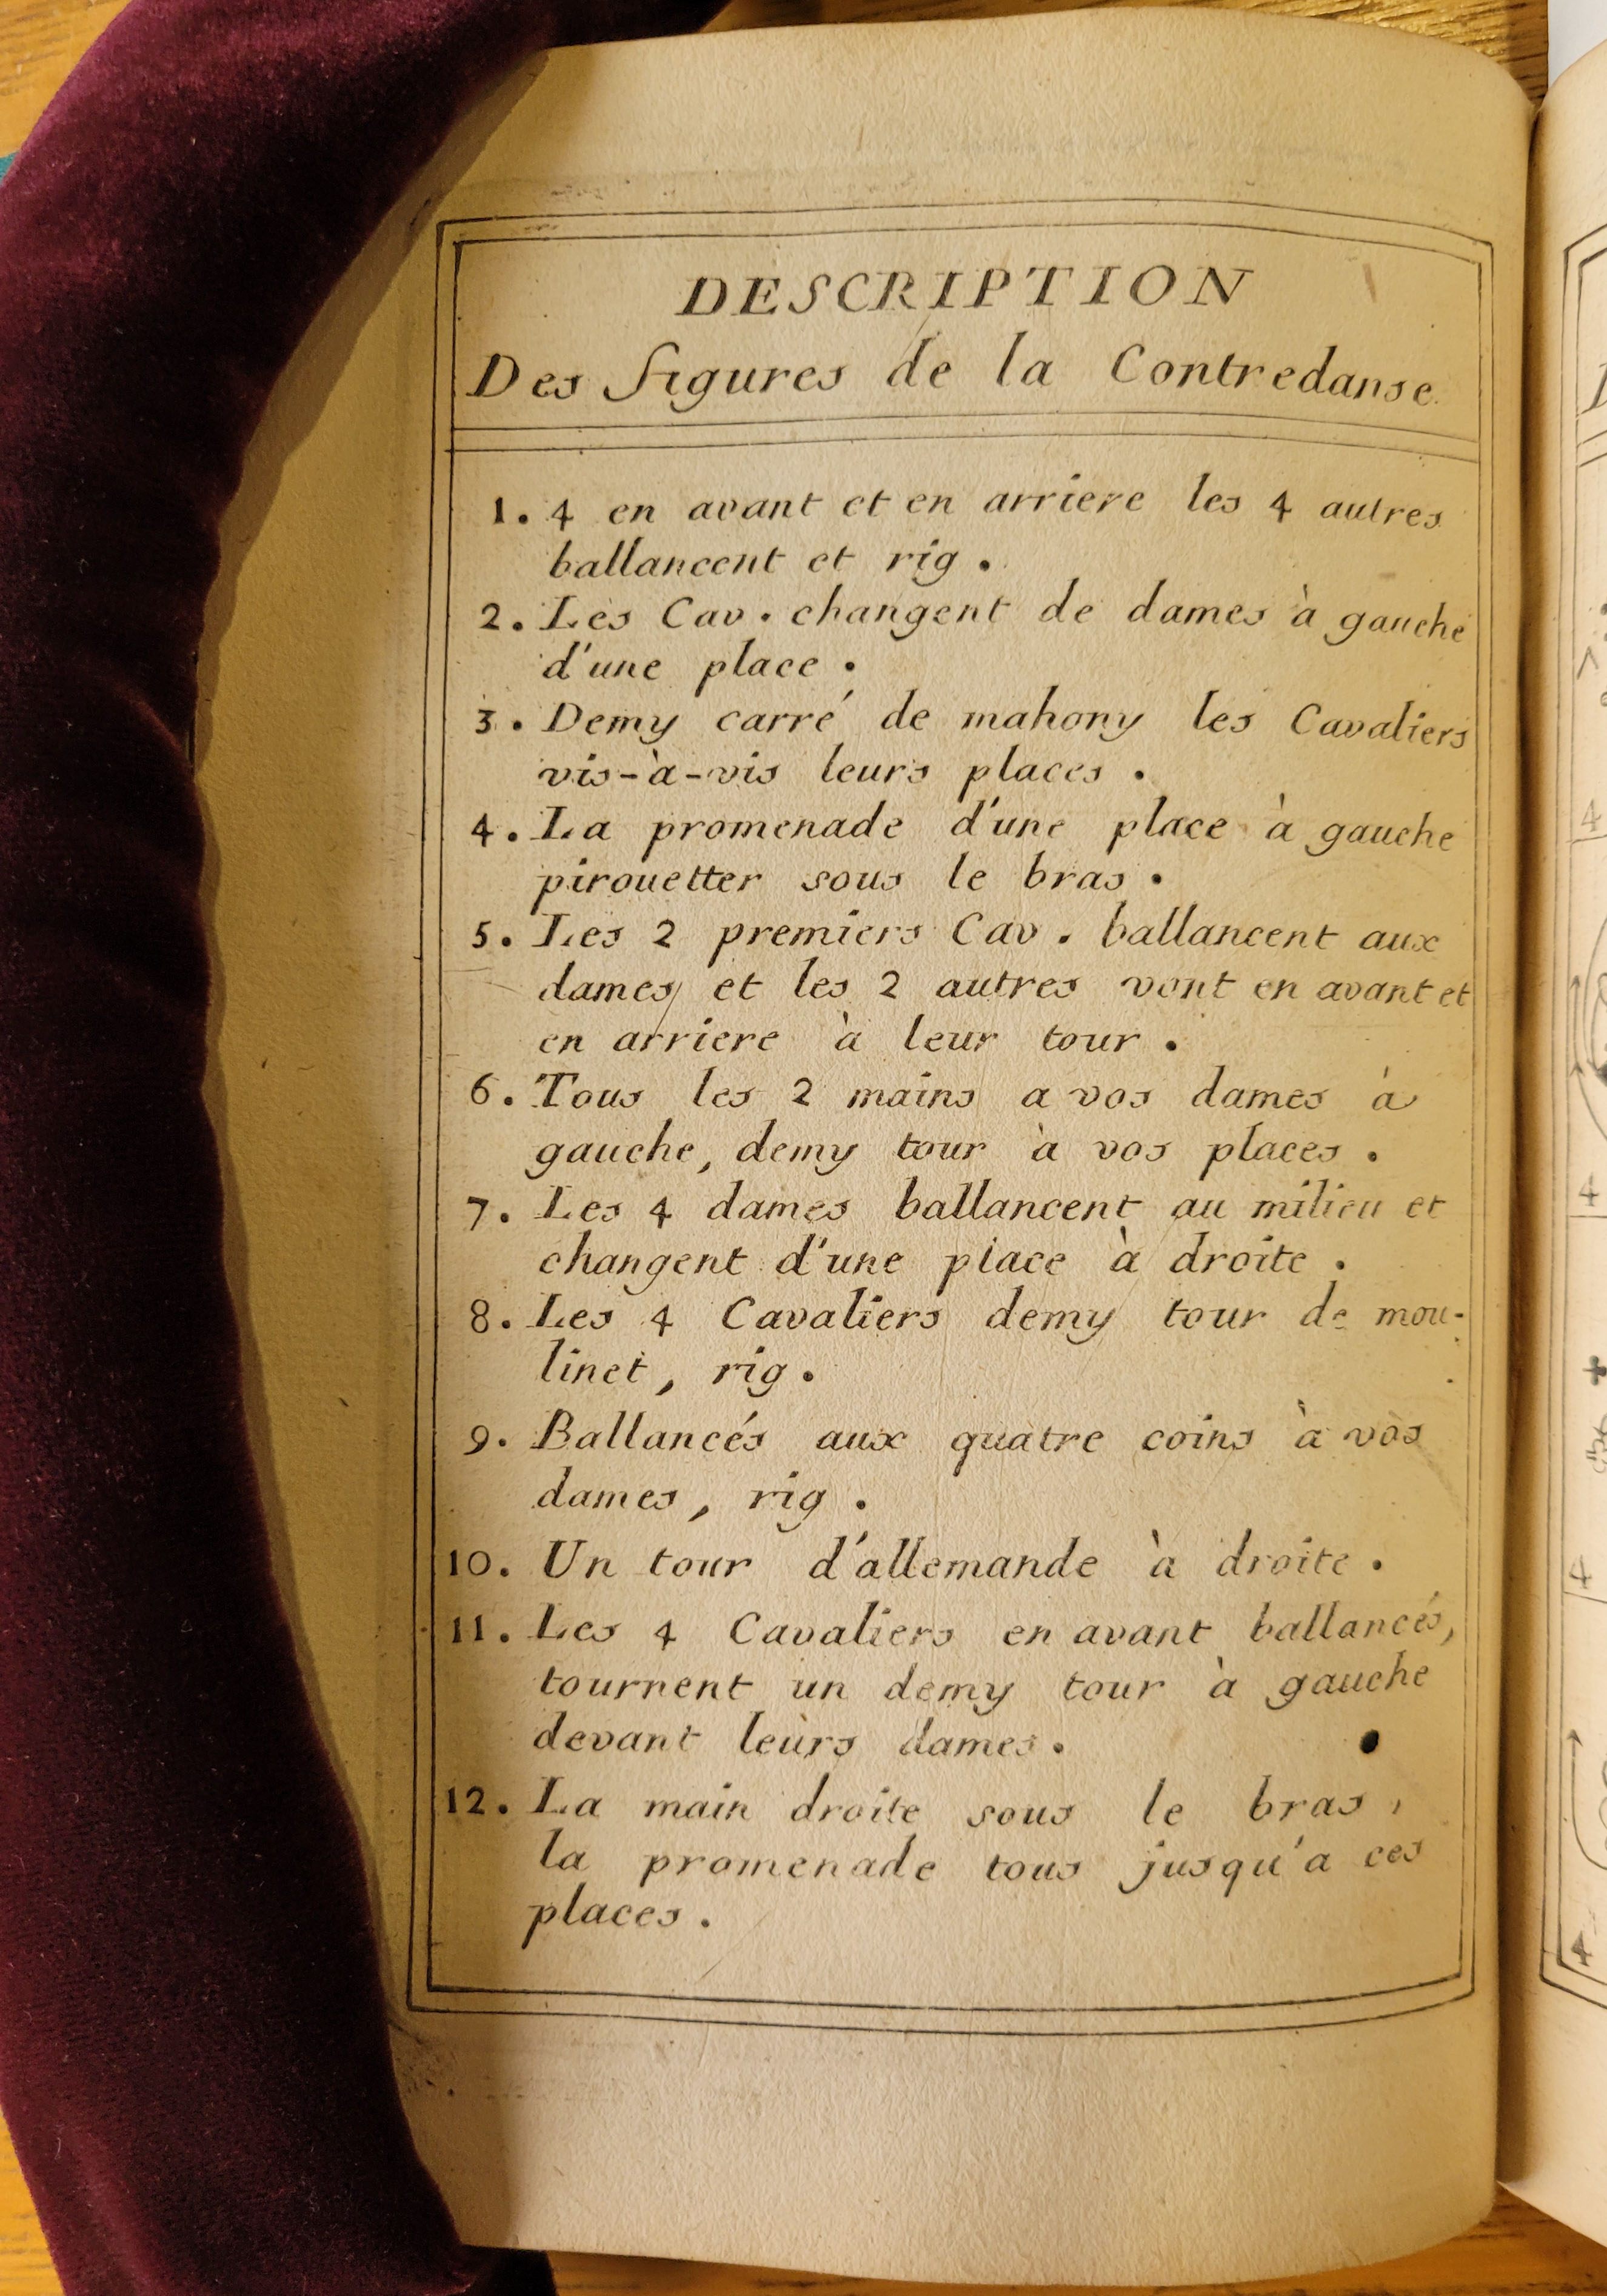 DESCRIPTION
Des figures de la Contredanse.
1. 4 en avant et en arriere les 4 autres
ballancent et rig.
2. Les Cav. changent de dames à gauche
d'une place.
3. Demy carré de mahony les Cavaliers
vis-à-vis leurs places.
4. La promenade d'une place à gauche
pirouetter sous le bras.
5. Les 2 premiers Cav. ballancent aux
dames et les 2 autres vont en avant et
en arriere à leur tour.
6. Tous les 2 mains a vos dames à
gauche, demy tour à vos places.
7. Les 4 dames ballancent au milieu et
changent d'une place à droite.
8. Les 4 Cavaliers demy tour de mou-
linet, rig.
9. Ballancés aux quatre coins à vos
dames, rig.
10. Un tour d'allemande à droite.
11. Les 4 Cavaliers en avant ballancés,
tournent un demy tour à gauche
devant leurs dames.
12. La main droite sous le bras,
la promenade tous jusqu'a ces
places.
4
4
4
4